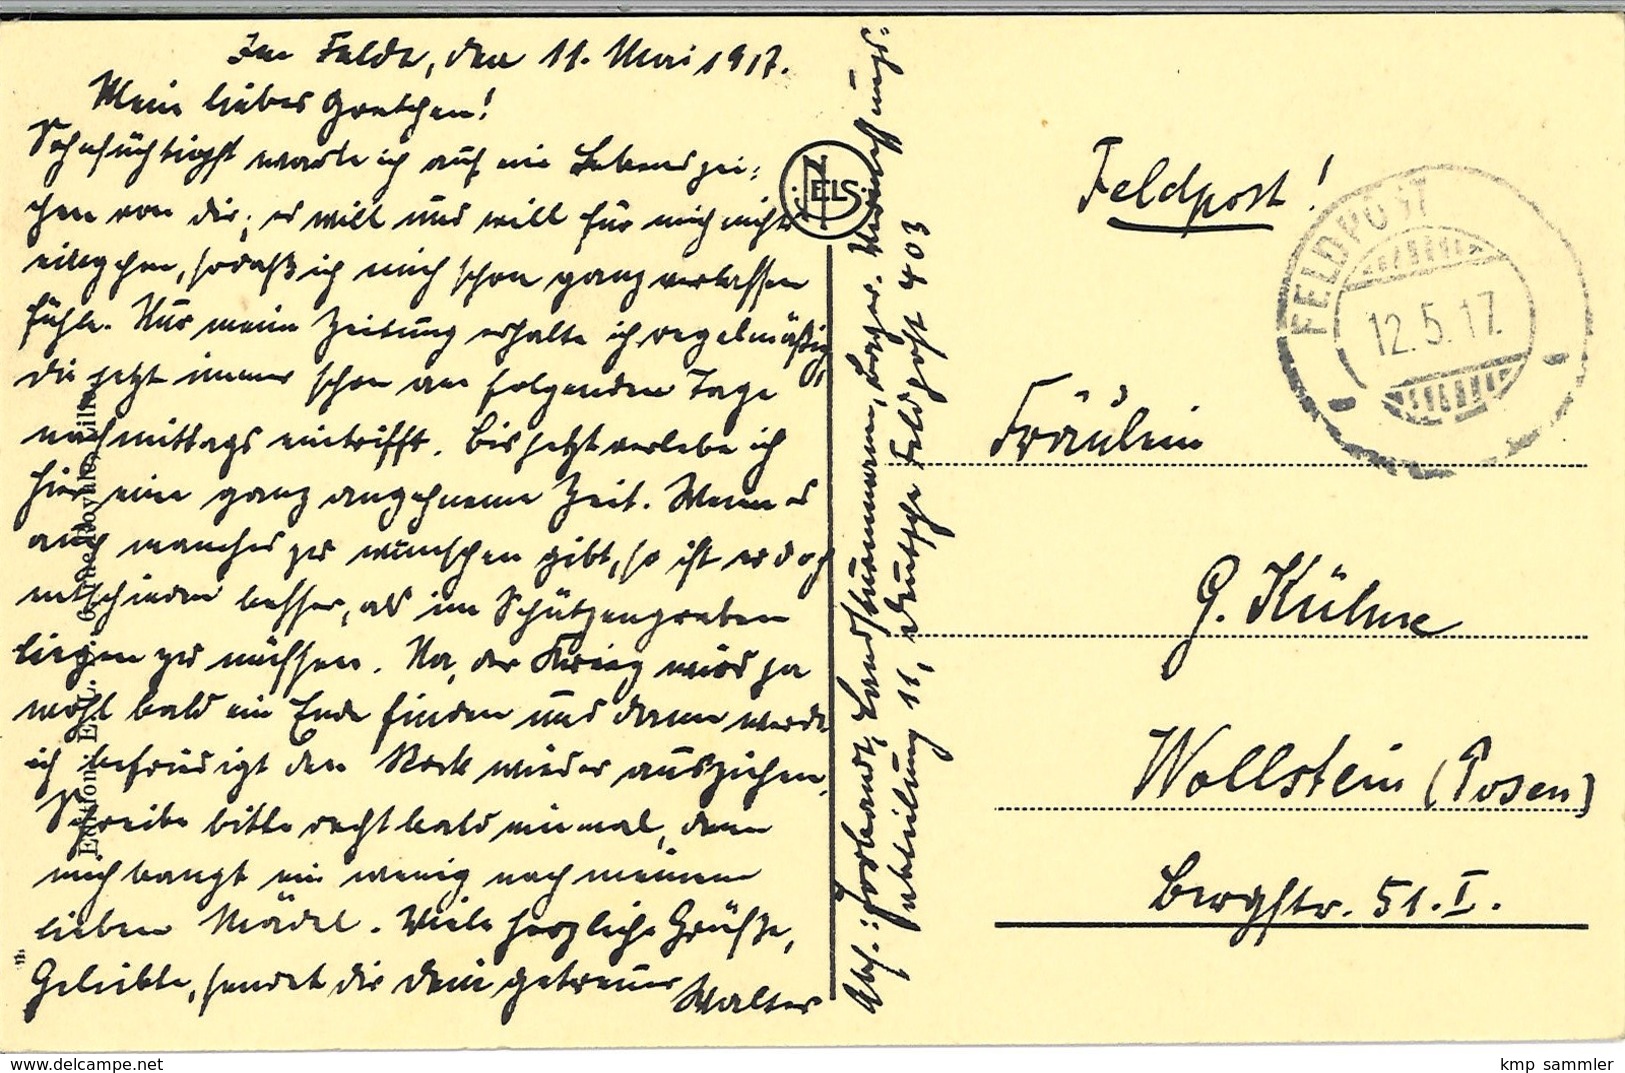 Im Felde, den 11. Mai 1917.
Mein liebes Gretchen!
Sehnsüchtigst warte ich auf ein Lebenszei-
chen von dir; es will und will für mich nichts
eingehen, sodaß ich mich schon ganz verlassen
fühle. Nur meine Zeitung erhalte ich regelmäßig,
die jetzt immer schon am folgenden Tage
nachmittags eintrifft. Bis jetzt verlebe ich
hier eine ganz angenehme Zeit. Wenn es
auch manches zu wünschen gibt, so ist es doch
entschieden besser, als im Schützengraben
liegen zu müssen. Na, der Krieg wird ja
wohl bald ein Ende finden und dann werde
ich befriedigt den Rock wieder ausziehen.
Schreibe bitte recht bald einmal, denn
mich bangt ein wenig nach meinem
lieben Mädel. Viele herzliche Grüße,
Geliebte, sendet dir dein getreuer
Walter
NELS
Edition: E.L.
Abs.: Landsturmmann, Bayr. Vermessungs-
abteilung 11, Deutsche Feldpost 403
Feldpost!
FELDPOST
12.5.17.
Fräulein
G. Kühne
Wollstein (Posen)
Bergstr. 51. I.
http://www.delcampe.net
kmp sammler